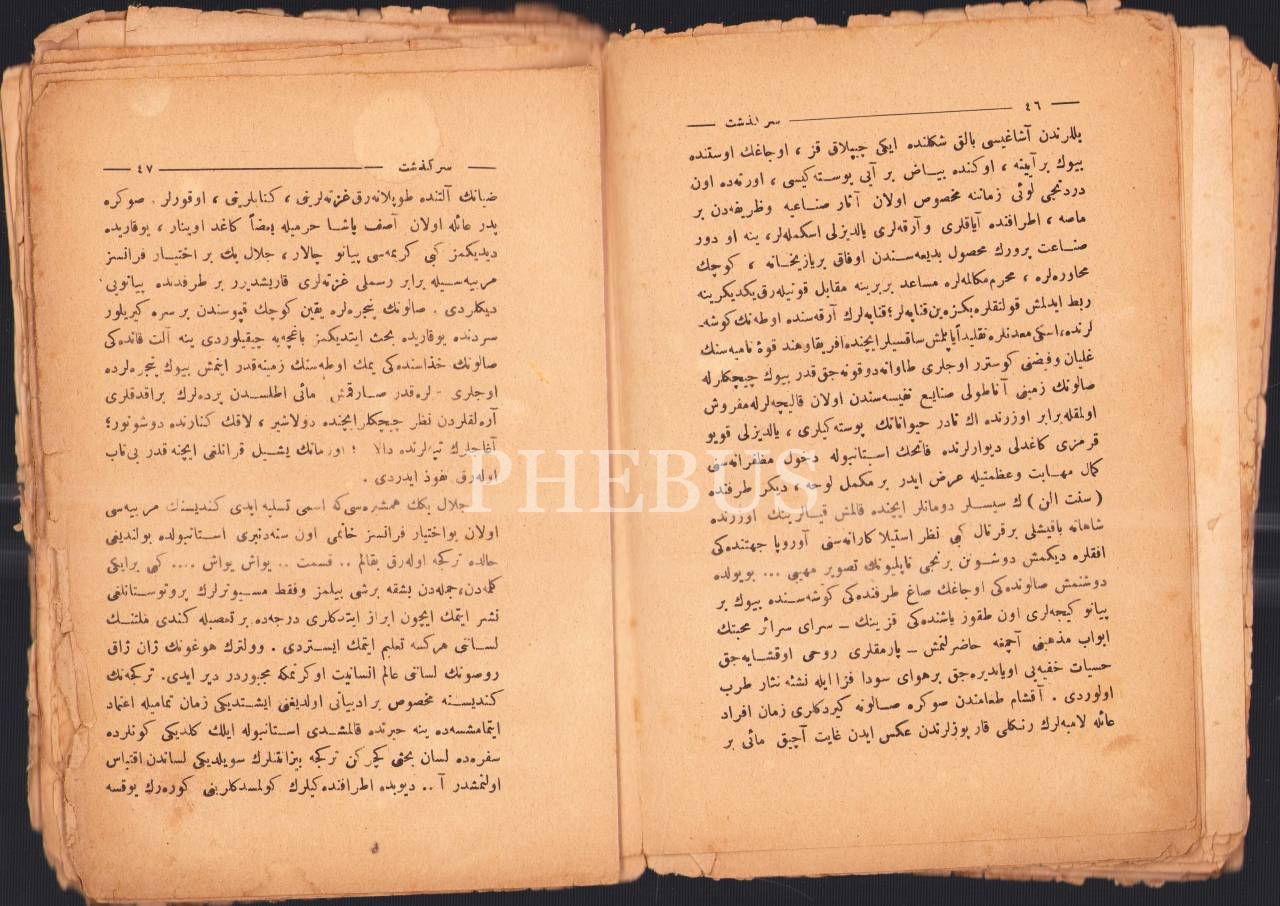 ٤٦
سر كذشت
بللرندن آشاغیسی بالق شكلنده ایكی چیپلاق قز ، اوجاغك اوستنده
بیوك بر آیینه ، اوكنده بیاض بر آیی پوسته‌كیسی ، اورته‌ده اون
دردنجی لوئی زماننه مخصوص اولان آثار صناعیه وظریفه‌دن بر
ماصه ، اطرافنده آیاقلری وآرقه‌لری یالدیزلی اسكمله‌لر، ینه او دور
صناعت پرورك محصول بدیعه‌سندن اوفاق بر یازیخانه ، كوچك
محاوره‌لره ، محرم مكالمه‌لره مساعد بربرینه مقابل قونیله‌رق یكدیكرینه
ربط ایدلمش قولتقلره بكزه‌ین قناپه‌لر؛ قناپه‌لرك آرقه‌سنده اوطه‌نك كوشه‌-
لرنده، اسكی معدنلره تقلیداً یاپلمش ساقسیلر ایچنده افریقا وهند قوۀ نامیه‌سنك
غلیان وفیضنی كوسترر اوجلری طاوانه دوقونه‌جق قدر بیوك چیچكلرله
صالونك زمینی آناطولی صنایع نفیسه‌سندن اولان قالیچه‌لرله مفروش
اولمقله برابر اوزرنده اك نادر حیواناتك پوسته‌كیلری ، یالدیزلی قویو
قرمزی كاغدلی دیوارلرنده فاتحك استانبوله دخول مظفرانه‌سنی
كمال مهابت وعظمتیله عرض ایدر بر مكمل لوحه ، دیكر طرفنده
( سنت الن ) ك سیسلر دومانلر ایچنده قالمش قیالرینك اوزرنده
شاهانه باقیشلی بر قرتال كبی نظر استیلا كارانه‌سنی آوروپا جهتنده‌كی
افقلره دیكمش دوشونن برنجی ناپلیونك تصویر مهیبی ... بویولده
دوشنمش صالونده‌كی اوجاغك صاغ طرفنده‌كی كوشه‌سنده بیوك بر
پیانو كیجه‌لری اون طقوز یاشنده‌كی قزینك ــ سرای سرائر محبتك
ابواب مذهبنی آچمغه حاضرلنمش ــ پارمقلری روحی اوقشایه‌جق
حسیات خفیه‌یی اویاندیره‌جق برهوای سودا فزا ایله نشئه نثار طرب
اولوردی . آقشام طعامندن صوكره صالونه كیردكلری زمان افراد
عائله لامبه‌لرك رنكلی قارپوزلرندن عكس ایدن غایت آچیق مائی بر
سر كذشت
٤٧
ضیانك آلتنده طوپلانه‌رق غزته‌لرینی ، كتابلرینی ، اوقورلر . صوكره
پدر عائله اولان آصف پاشا حرمیله بعضاً كاغد اوینار ، یوقاریده
دیدیكمز كبی كریمه‌سی پیانو چالار ، جلال بك بر اختیار فرانسز
مربیه‌سیله برابر رسملی غزته‌لری قاریشدیرر بر طرفدنده پیانویی
دیكلردی . صالونك پنجره‌لره یقین كوچك قپوسندن بر سره كیریلور
سردنده یوقاریده بحث ایتدیكمز باغچه‌یه چیقیلوردی ینه آلت قاتده‌كی
صالونك حذاسنده‌كی یمك اوطه‌سنك زمینه قدر اینمش بیوك پنجره‌لرده
اوجلری یرلره قدر صارقمش مائی اطلسدن پرده‌لرك براقدقلری
آره‌لقلردن نظر چیچكلر ایچنده دولاشیر ، لاقك كنارنده دوشونور ؛
آغاجلرك تپه‌لرنده دالار ؛ اورمانك یشیل قرانلغی ایچنه قدر بی‌تاب
اوله‌رق نفوذ ایدردی .
جلال بكك همشیره‌سی كه اسمی تسلیه ایدی كندیسنك مربیه‌سی
اولان بو اختیار فرانسز خانمی اون سنه‌دنبری استانبولده بولندیغی
حالده تركجه اوله‌رق بقالم .. قسمت .. یواش یواش .... كبی برایكی
كله‌دن، جمله‌دن بشقه برشی بیلمز وفقط مسیونرلرك پروتوستانلغی
نشر ایتمك ایچون ابراز ایتدكلری درجه‌ده بر تعصبله كندی ملتنك
لساننی هركسه تعلیم ایتمك ایستردی . وولترك هوغونك ژان ژاق
روصونك لسانی عالم انسانیت اوكرنمكه مجبوردر دیر ایدی. تركجه‌نك
كندیسنه مخصوص بر ادبیاتی اولدیغنی ایشتدیكی زمان تمامیله اعتماد
ایتمامشسه‌ده ینه حیرتده قالمشدی استانبوله ایلك كلدیكی كونلرده
سفره‌ده لسان بحثی كچركن تركجه بیزانتنلرك سویلدیكی لساندن اقتباس
اولنمشدر آ .. دیوبده اطرافنده‌كیلرك كولمسدكلرینی كوره‌رك یوقسه
PHEBUS